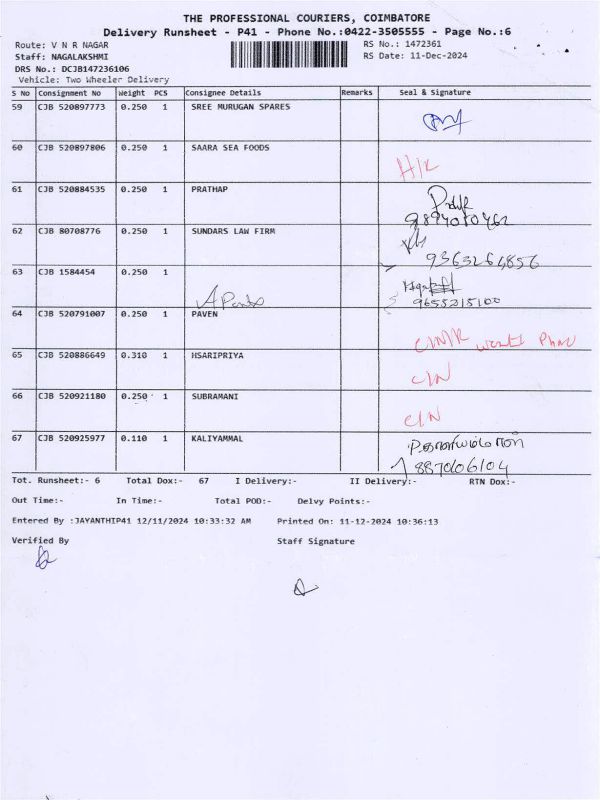 THE PROFESSIONAL COURIERS, COIMBATORE
Delivery Runsheet - P41 - Phone No.:0422-3505555 - Page No.:6
Route: V N R NAGAR RS No.: 1472361
Staff: NAGALAKSHMI RS Date: 11-Dec-2024
DRS No.: DCJB147236106
Vehicle: Two Wheeler Delivery
S No Consignment No Weight PCS Consignee Details Remarks Seal & Signature
59 CJB 520897773 0.250 1 SREE MURUGAN SPARES
60 CJB 520897806 0.250 1 SAARA SEA FOODS
H/R
61 CJB 520884535 0.250 1 PRATHAP
9894070462
62 CJB 80708776 0.250 1 SUNDARS LAW FIRM
9363264856
63 CJB 1584454 0.250 1
9655215100
64 CJB 520791007 0.250 1 PAVEN
65 CJB 520886649 0.310 1 HSARIPRIYA
C/N
66 CJB 520921180 0.250 1 SUBRAMANI
C/N
67 CJB 520925977 0.110 1 KALIYAMMAL
Tot. Runsheet:- 6 Total Dox:- 67 I Delivery:- II Delivery:- RTN Dox:-
Out Time:- In Time:- Total POD:- Delvy Points:-
Entered By :JAYANTHIP41 12/11/2024 10:33:32 AM Printed On: 11-12-2024 10:36:13
Verified By Staff Signature